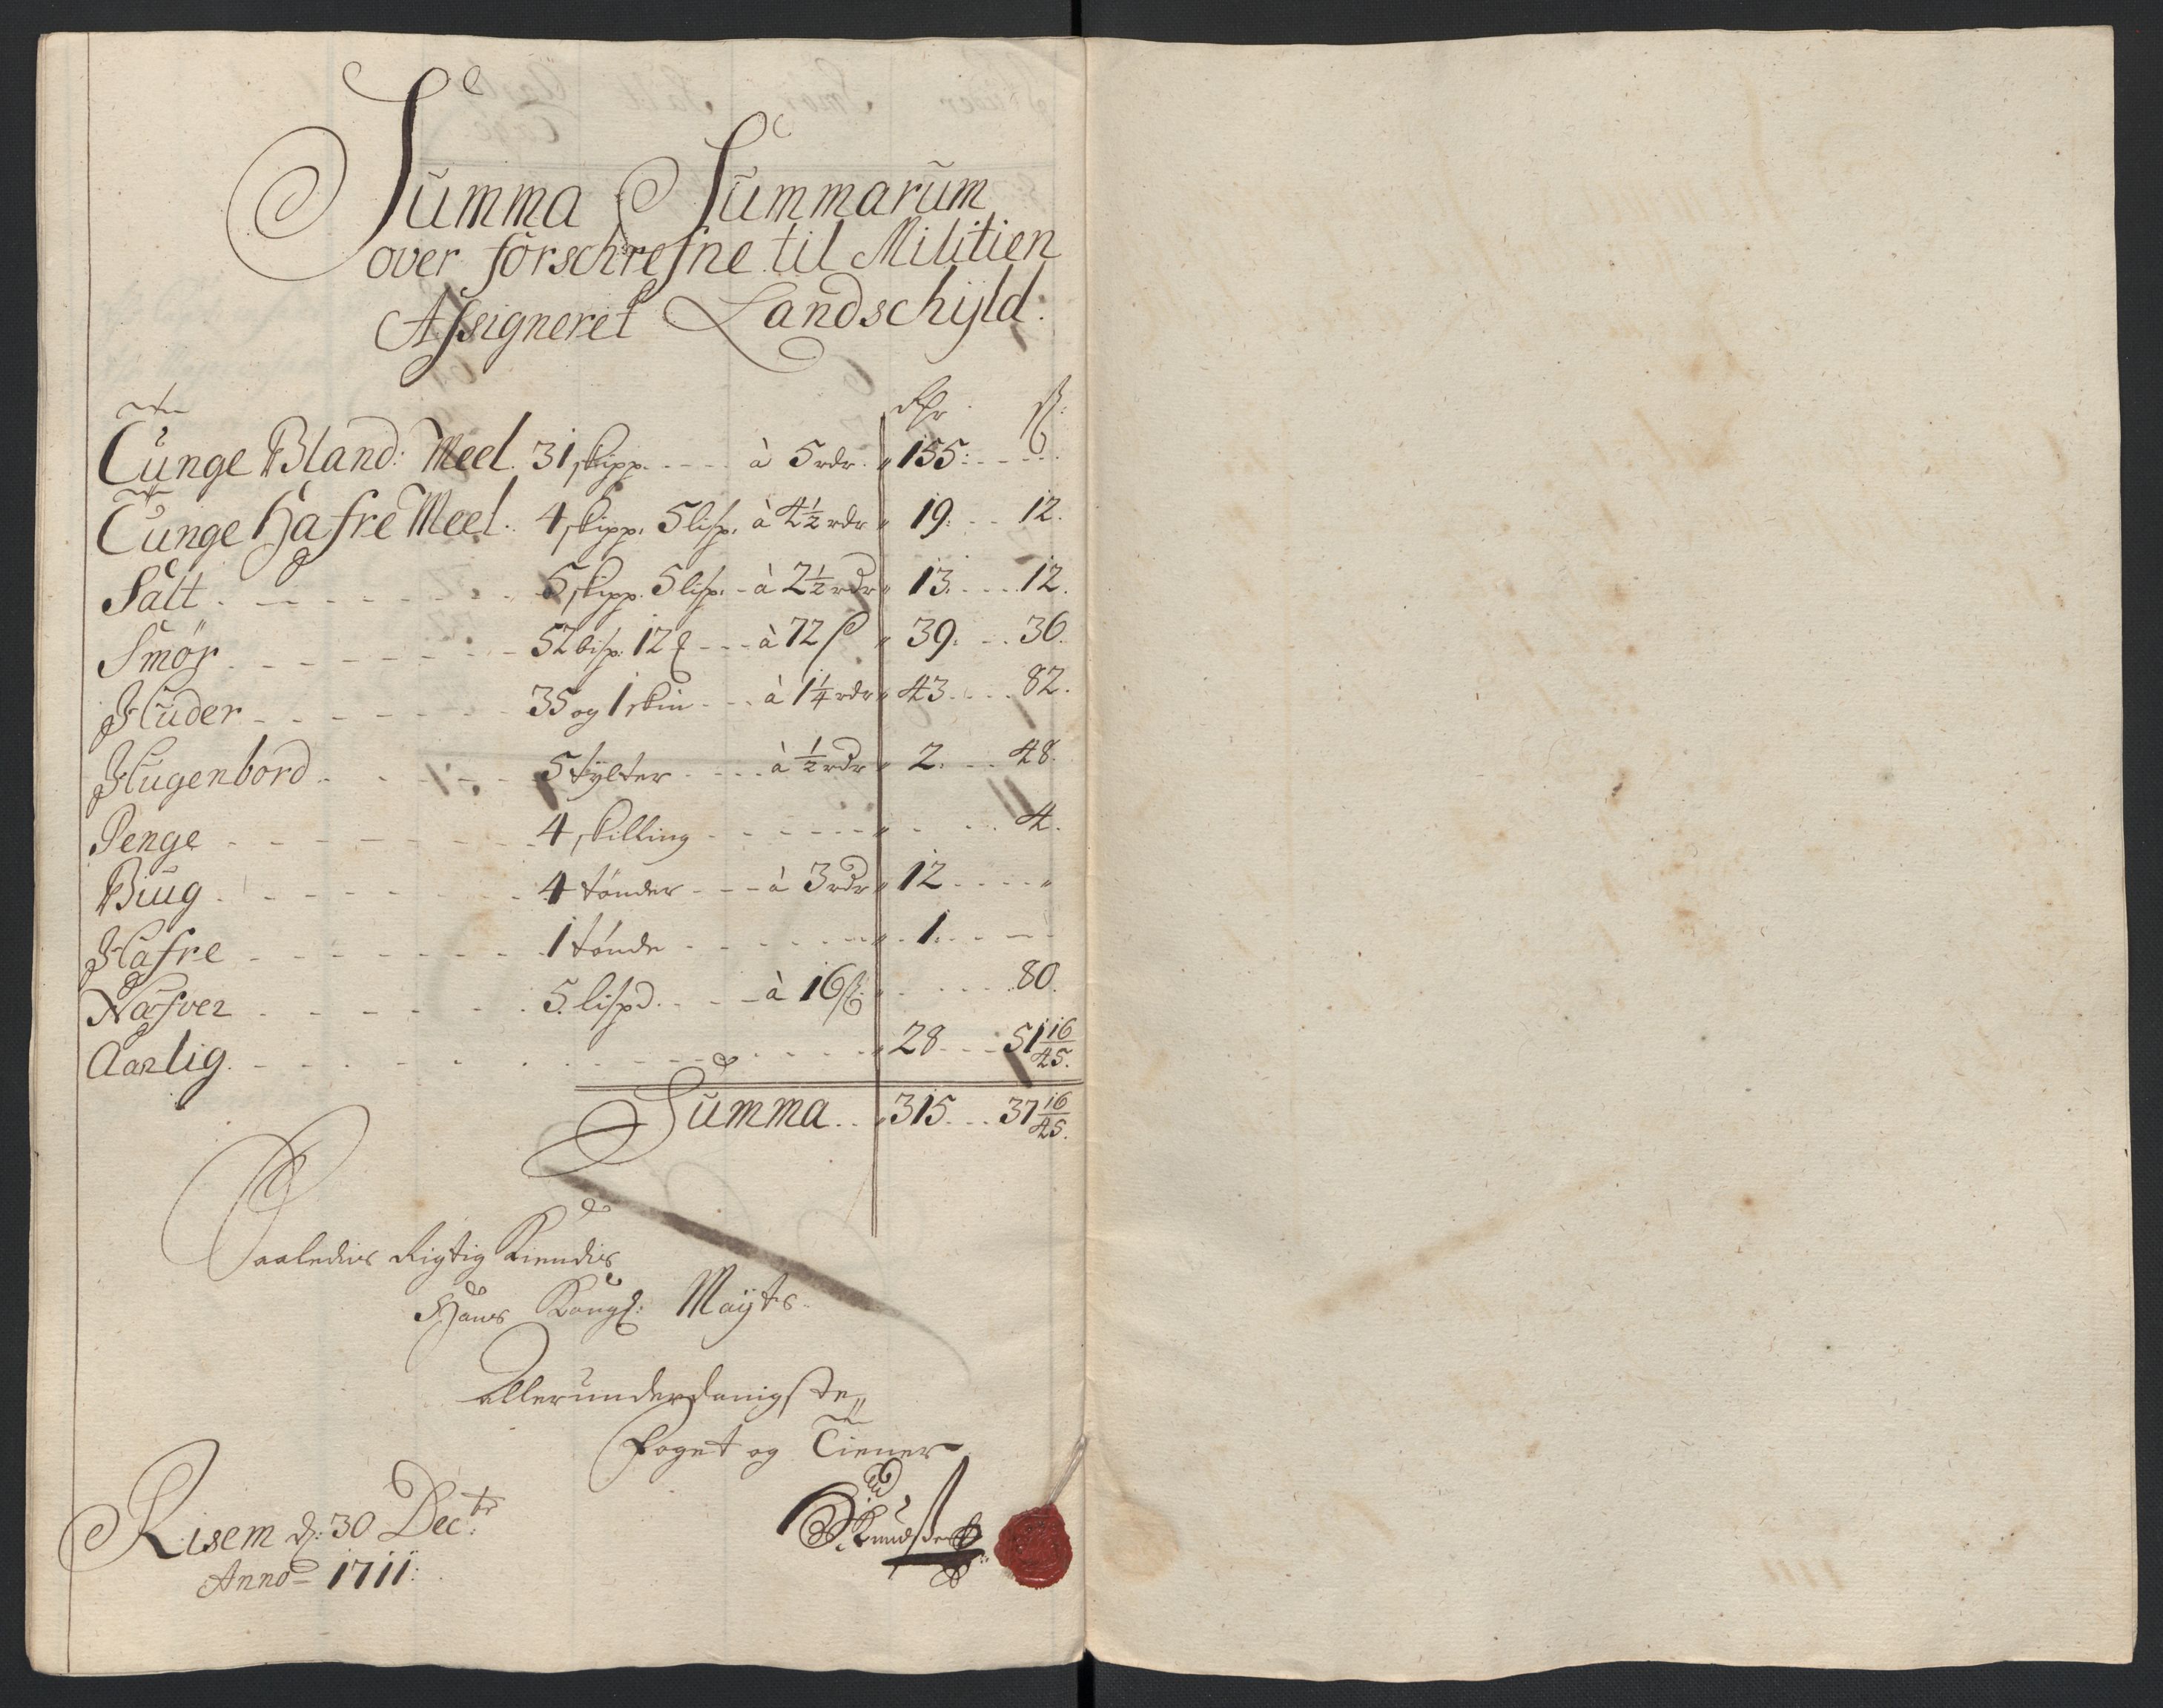 Summa Summarum
over forschrefne til Militien
Assigneret Landschyld.
Rdr ß:
Tunge Bland: Meel. 31 skipp. à 5 rdr. 155:
Tunge Hafre Meel. 4 skipp. 5 lisp. à 4½ rdr 19. 12.
Salt 5 skipp. 5 lisp. à 2½ rdr 13. 12.
Smør 52 bisp. 12 à 72 ß 39. 36.
Huder 35 og 1 skin à 1¼ rdr 43. 82.
Hugenbord 5 tylter à ½ rdr 2. 48.
Penge 4 skilling 4.
Biug 4 tønder à 3 rdr 12
Hafre 1 tønde 1.
Næfver 5. lispd. à 16 ß: 80.
Aarlig. 28 51 16/45.
Summa 315 37 16/45.
Saaledis Rigtig Kiendis
Hans Kongl: Mayts.
allerunderdanigste
Foget og Tiener
Knudsen
Risem d: 30 Decbr:
Anno 1711: